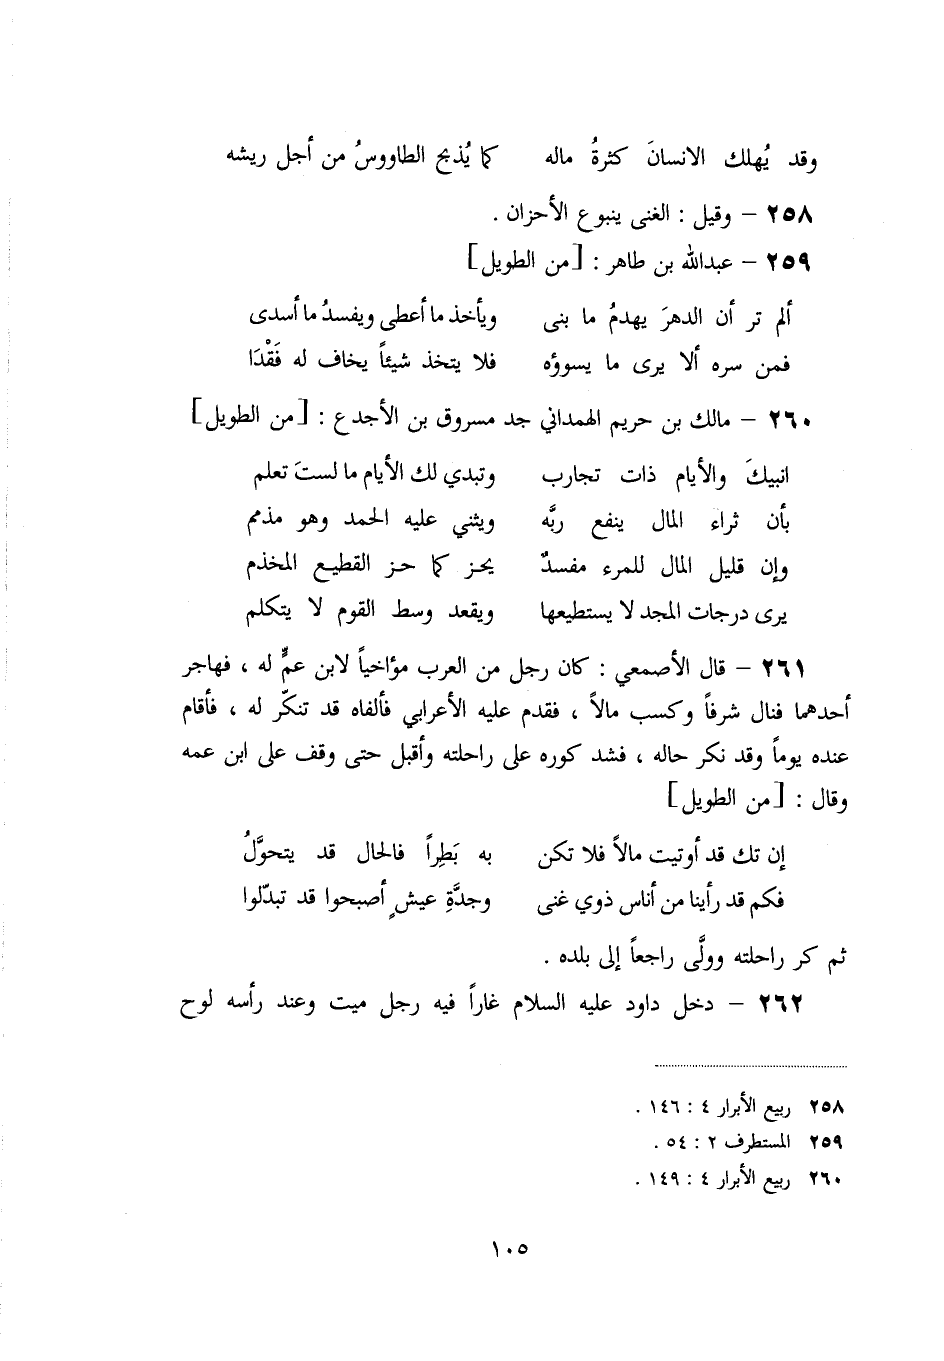 وقد يُهلك الانسانَ كثرةُ ماله كما يُذبح الطاووسُ من أجل ريشه
٢٥٨ – وقيل : الغنى ينبوع الأحزان .
٢٥٩ – عبدالله بن طاهر : [من الطويل]
ألم تر أن الدهرَ يهدمُ ما بنى ويأخذ ما أعطى ويفسدُ ما أسدى
فمن سره ألا يرى ما يسوؤه فلا يتخذ شيئاً يخاف له فَقْدَا
٢٦٠ – مالك بن حريم الهمداني جد مسروق بن الأجدع : [من الطويل]
انبيكَ والأيام ذات تجارب وتبدي لك الأيام ما لستَ تعلم
بأن ثراء المال ينفع ربَّه ويثني عليه الحمد وهو مذمم
وإن قليل المال للمرء مفسدٌ يحز كما حز القطيع المخذم
يرى درجات المجد لا يستطيعها ويقعد وسط القوم لا يتكلم
٢٦١ – قال الأصمعي : كان رجل من العرب مؤاخياً لابن عمٍّ له ، فهاجر
أحدهما فنال شرفاً وكسب مالاً ، فقدم عليه الأعرابي فألفاه قد تنكّر له ، فأقام
عنده يوماً وقد نكر حاله ، فشد كوره على راحلته وأقبل حتى وقف على ابن عمه
وقال : [من الطويل]
إن تك قد أوتيت مالاً فلا تكن به بَطِراً فالحال قد يتحوَّلُ
فكم قد رأينا من أناس ذوي غنى وجدَّةِ عيشٍ أصبحوا قد تبدّلوا
ثم كر راحلته وولَّى راجعاً إلى بلده .
٢٦٢ – دخل داود عليه السلام غاراً فيه رجل ميت وعند رأسه لوح
٢٥٨ ربيع الأبرار ٤ : ١٤٦ .
٢٥٩ المستطرف ٢ : ٥٤ .
٢٦٠ ربيع الأبرار ٤ : ١٤٩ .
١٠٥